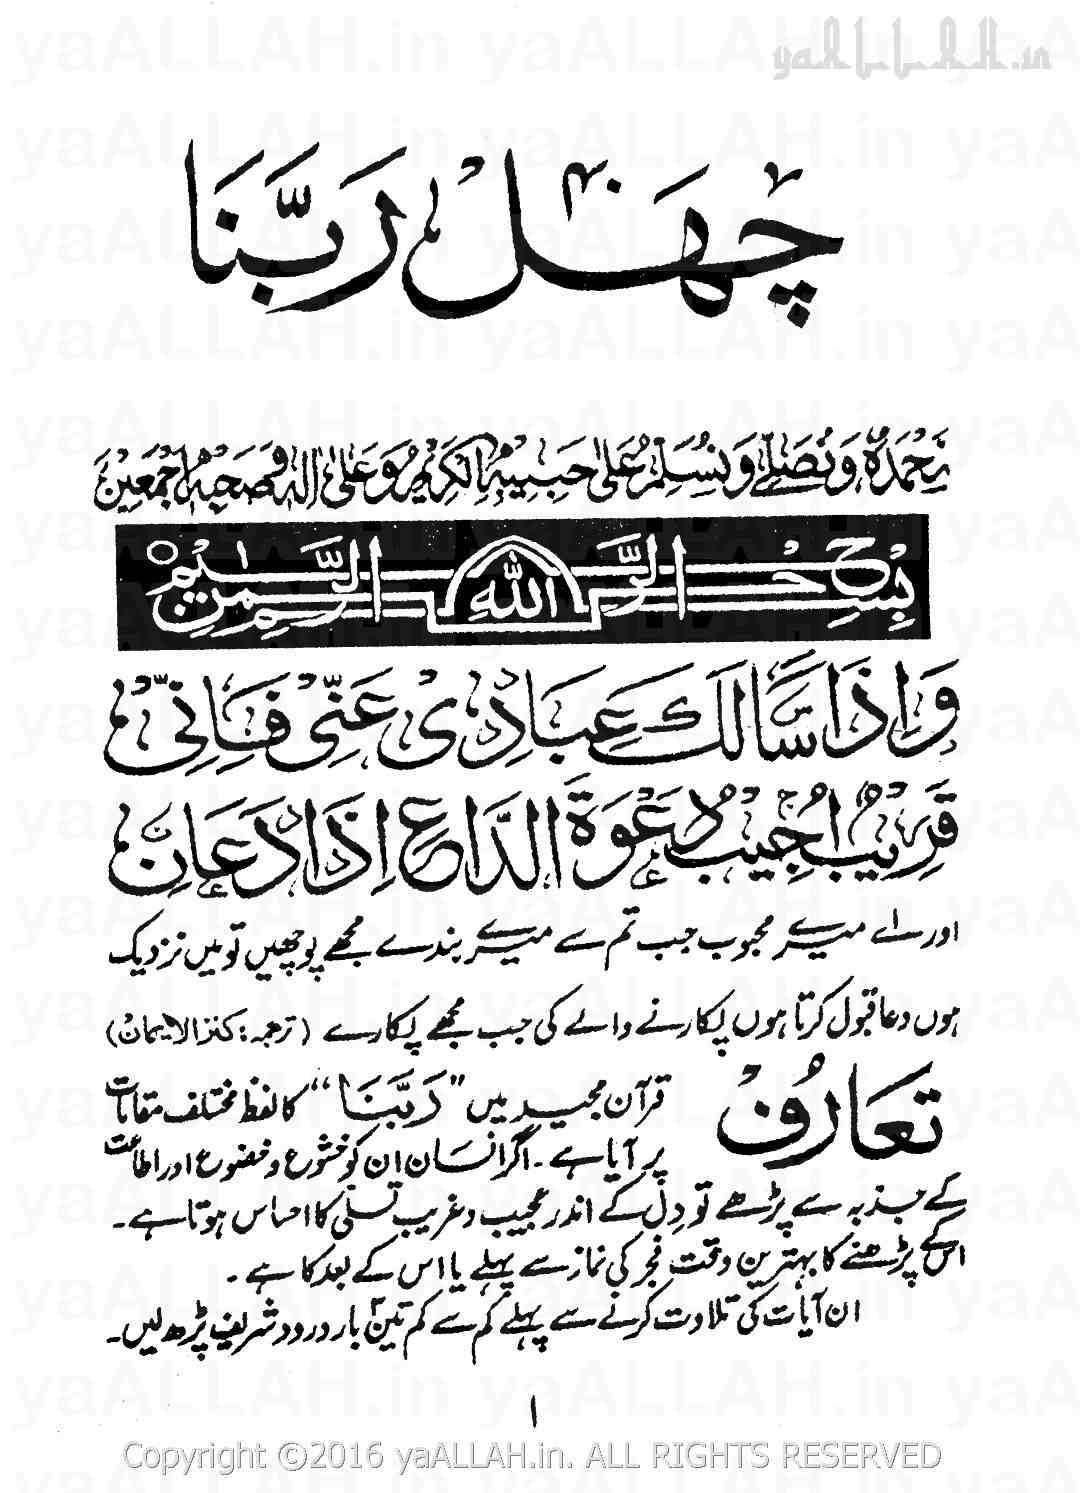 yaALLAH.in
چھل رَبَّنَا
نَحْمَدُهٗ وَنُصَلِّیْ وَنُسَلِّمُ عَلٰی حَبِیْبِهِ الْکَرِیْمِ وَعَلٰی اٰلِهٖ وَصَحْبِهٖ اَجْمَعِیْنَ
بسم الله الرحمن الرحيم
وَاِذَا سَاَلَكَ عِبَادِیْ عَنِّیْ فَاِنِّیْ
قَرِیْبٌ اُجِیْبُ دَعْوَةَ الدَّاعِ اِذَا دَعَانِ
اور اے میرے محبوب جب تم سے میرے بندے مجھے پوچھیں تو میں نزدیک
ہوں دعا قبول کرتا ہوں پکارنے والے کی جب مجھے پکارے (ترجمہ: کنزالایمان)
تعارُف
قرآن مجید میں "رَبَّنَا" کا لفظ مختلف مقامات
پر آیا ہے۔ اگر انسان ان کو خشوع و خضوع اور اطاعت
کے جذبہ سے پڑھے تو دِل کے اندر عجیب و غریب تسلی کا احساس ہوتا ہے۔
اس کے پڑھنے کا بہترین وقت فجر کی نماز سے پہلے یا اس کے بعد کا ہے۔
ان آیات کی تلاوت کرنے سے پہلے کم سے کم تین بار درود شریف پڑھ لیں۔
۱
Copyright ©2016 yaALLAH.in. ALL RIGHTS RESERVED